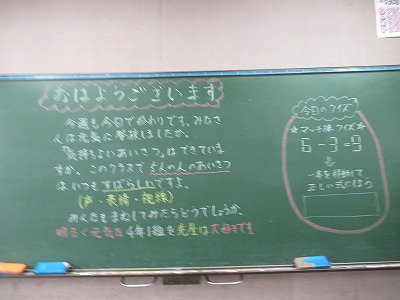 おはようございます
今週も今日で終わりです。みなさ
んは元気に登校しましたか。
「気持ちよいあいさつ」はできていま
すか。このクラスで の人のあいさつ
はいつもすばらしいですよ。
(声・表情・視線)
みんなもまねしてみたらどうでしょうか。
明るく元気な4年1組を先生は大好きです
今日のクイズ
★マッチ棒クイズ★
6-3=9
⇓
一本を移動して
正しい式にしよう